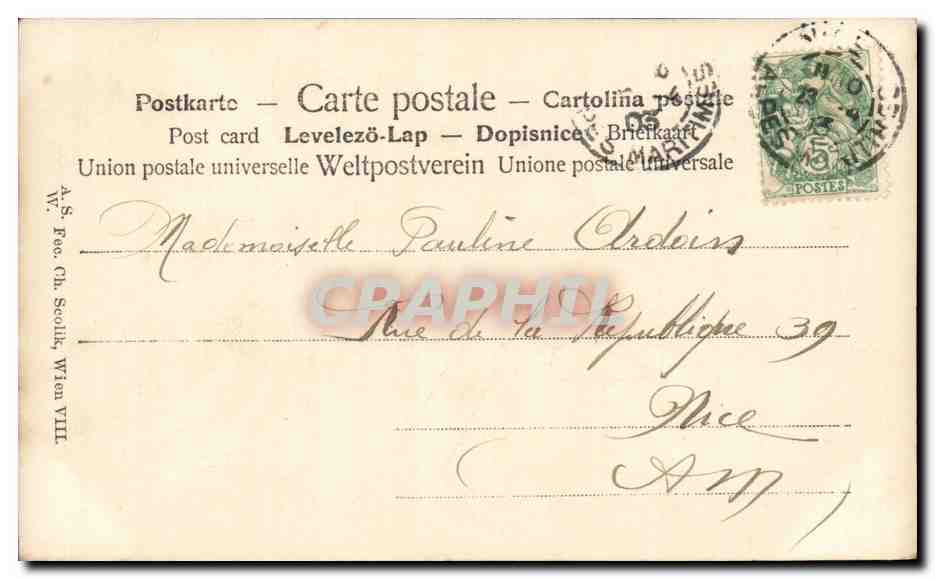 Postkarte — Carte postale — Cartolina postale
Post card Levelezö-Lap — Dopisnice Briefkaart
Union postale universelle Weltpostverein Unione postale universale
MARITIMES
03
23
POSTES
A. S. Fec. Ch. Scolik, Wien VIII.
W.
Mademoiselle Pauline Ardoin
CRAPHIL
Rue de la République 39
Nice
(AM)